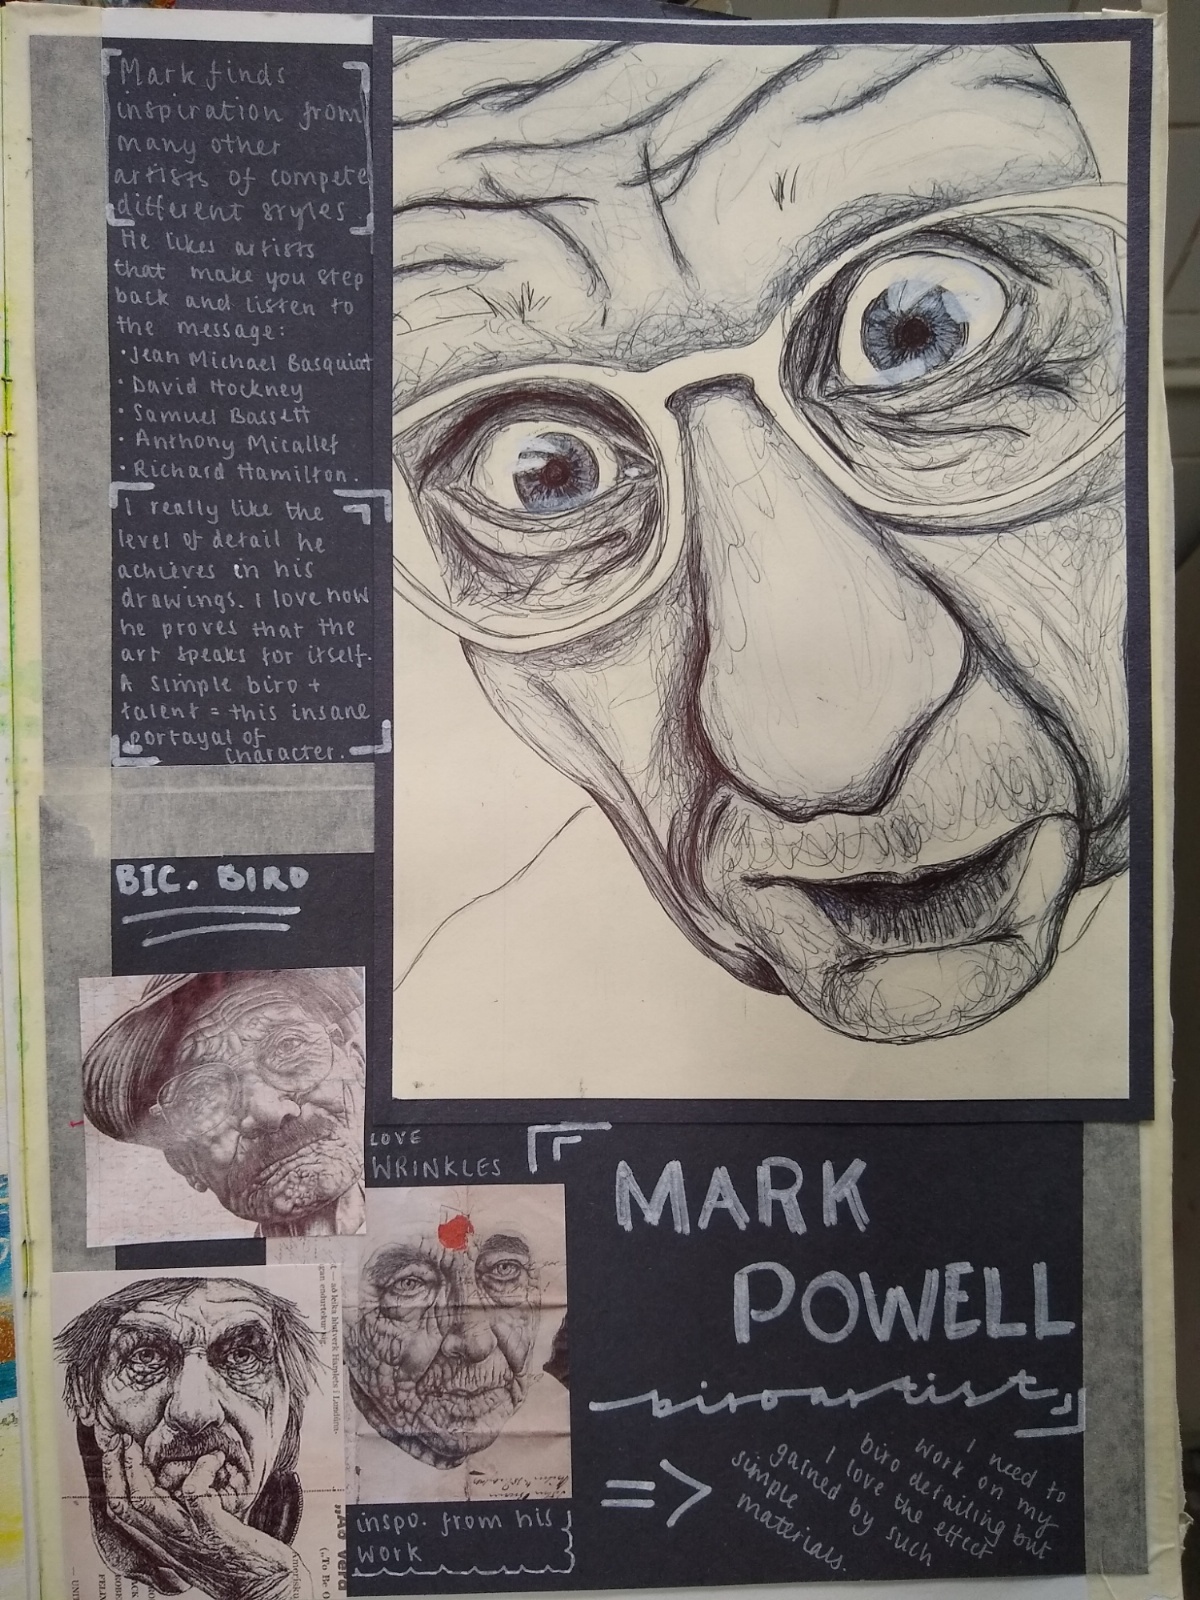 Mark finds
inspiration from
many other
artists of compete
different styles
He likes artists
that make you step
back and listen to
the message:
• Jean Michael Basquiat
• David Hockney
• Samuel Bassett
• Anthony Micallef
• Richard Hamilton.
I really like the
level of detail he
achieves in his
drawings. I love how
he proves that the
art speaks for itself.
A simple biro +
talent = this insane
portayal of
character.
BIC. BIRO
LOVE
WRINKLES
MARK
POWELL
biro artist
=> I need to
work on my
biro detailing but
I love the effect
gained by such
simple
materials.
inspo. from his
work